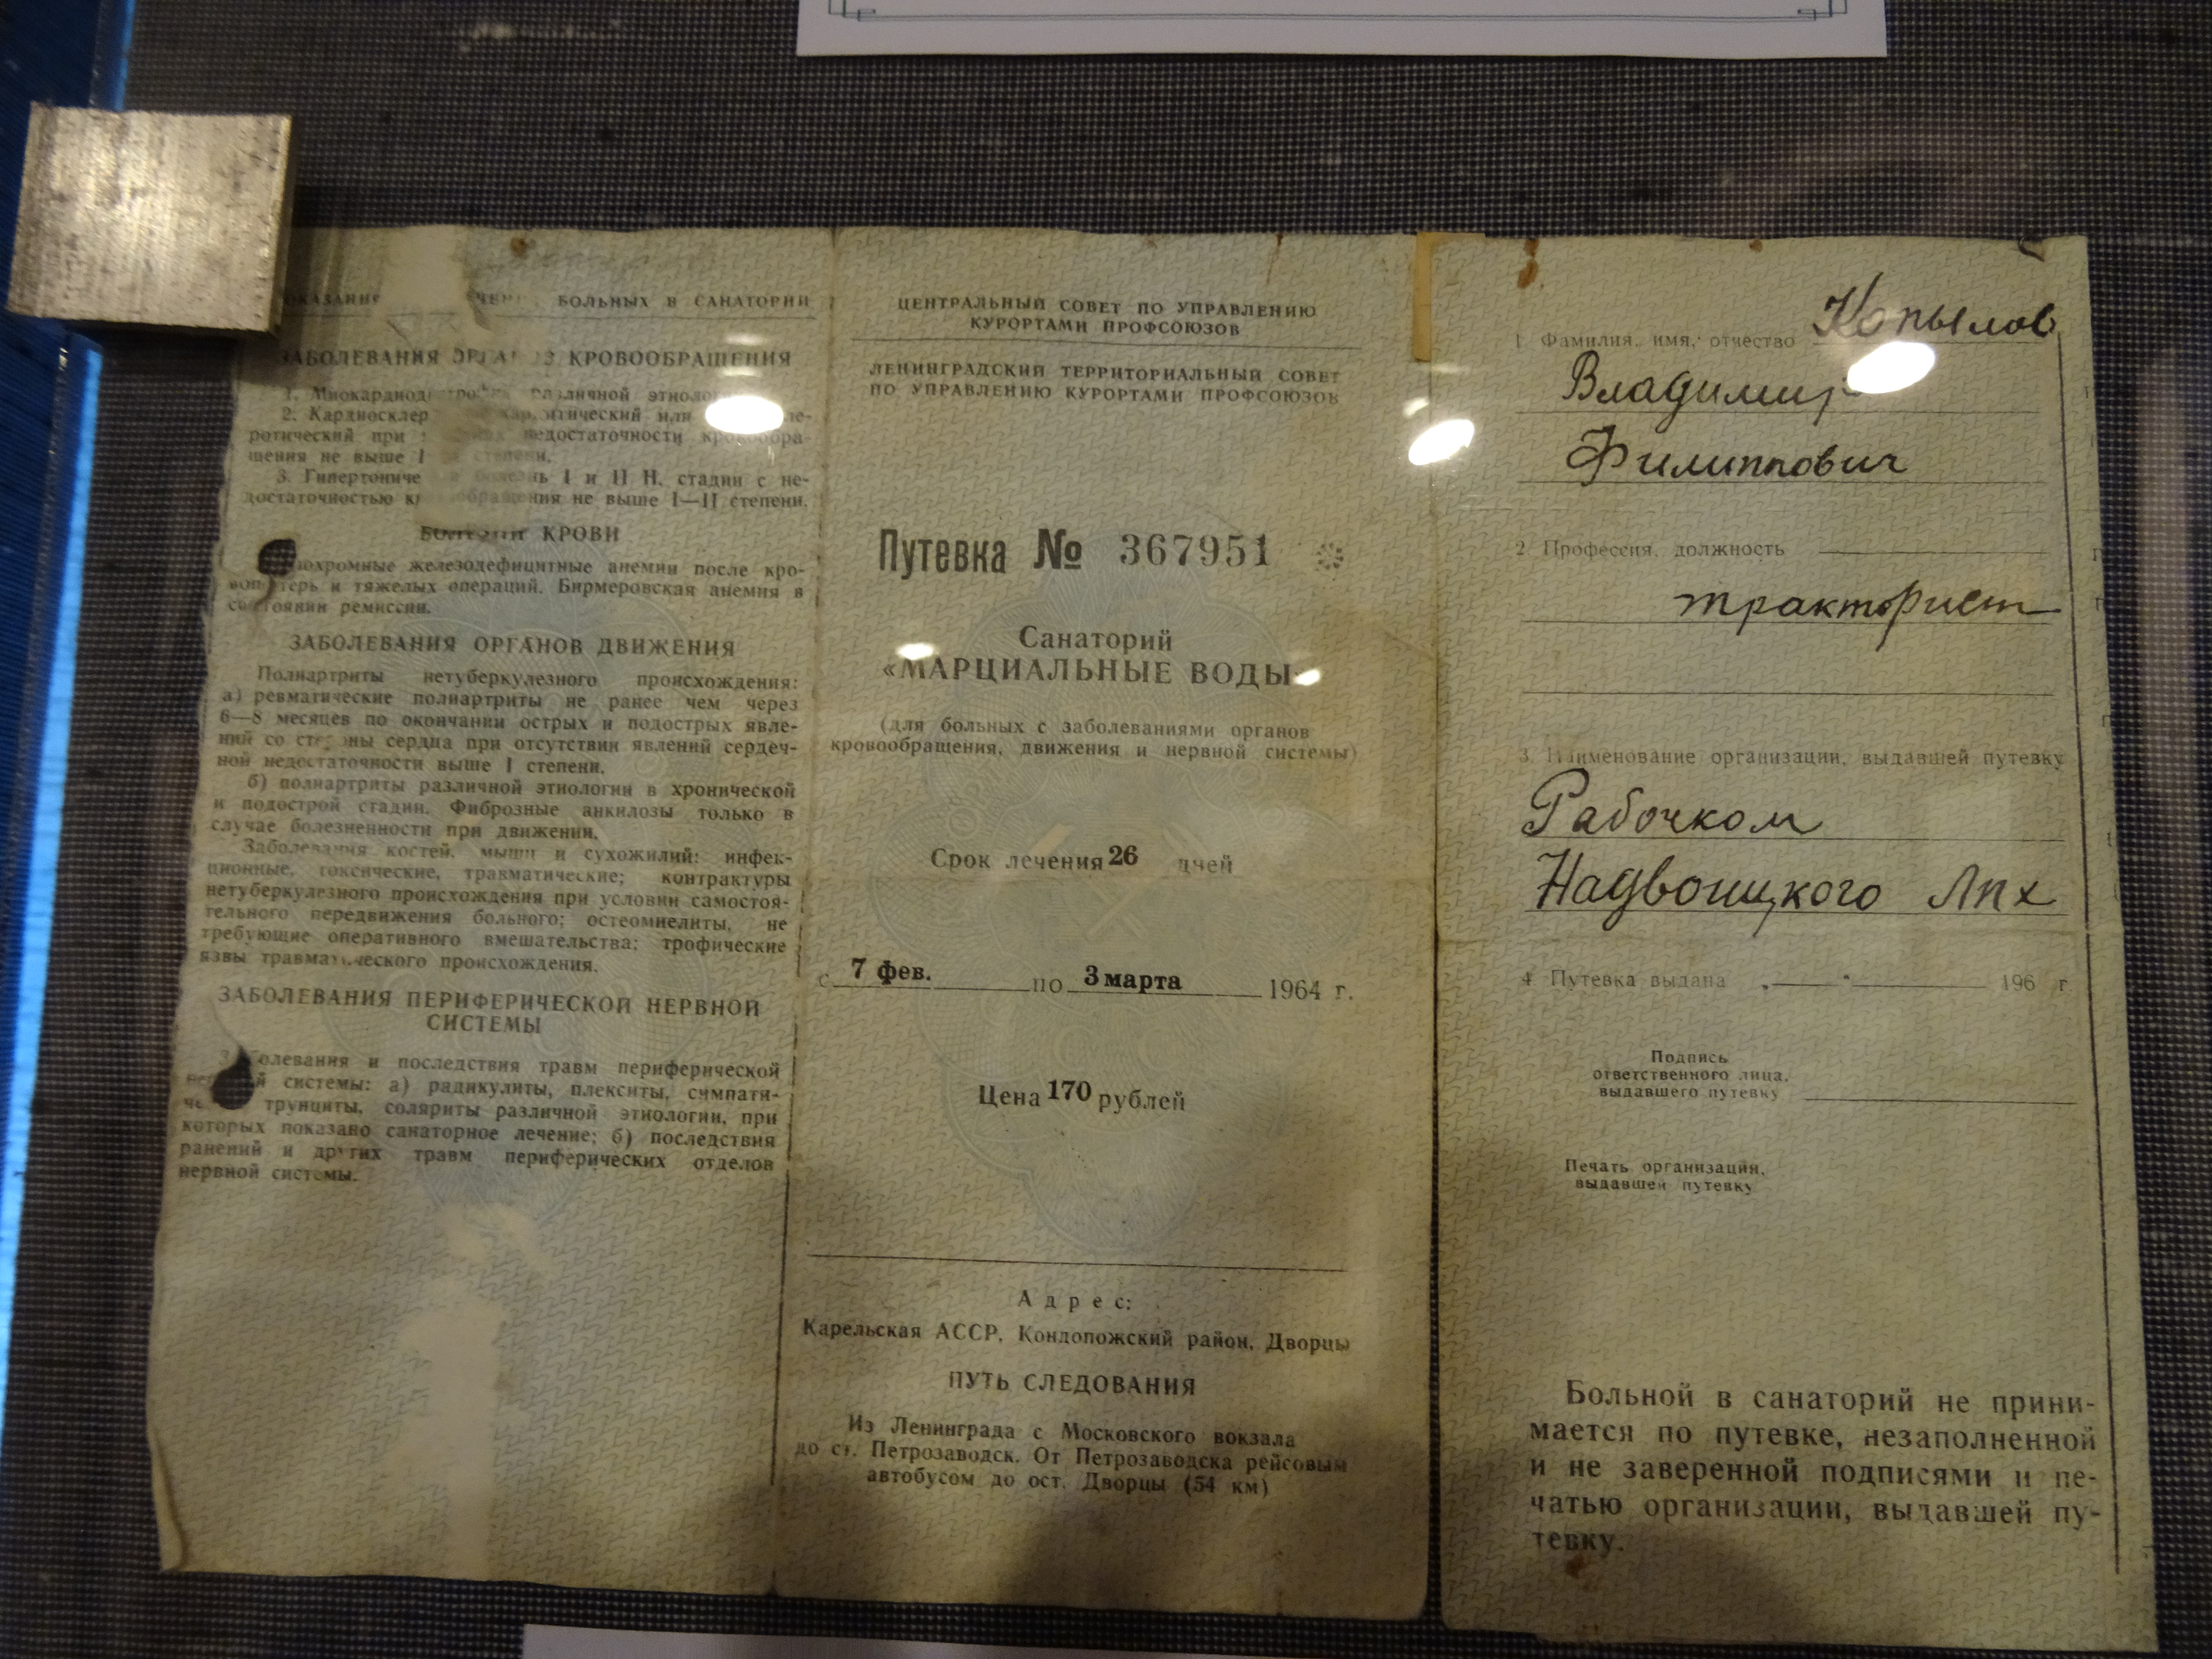 БОЛЬНЫХ В САНАТОРИИ
ЗАБОЛЕВАНИЯ КРОВООБРАЩЕНИЯ
1. различной
2. или
ротический при недостаточности кровообра-
щения не выше I степени.
3. I и II Н. стадии с не-
достаточностью обращения не выше I—II степени.
КРОВИ
железодефицитные анемии после кро-
и тяжелых операций. Бирмеровская анемия в
состоянии ремиссии.
ЗАБОЛЕВАНИЯ ОРГАНОВ ДВИЖЕНИЯ
Полиартриты нетуберкулезного происхождения:
а) ревматические полиартриты не ранее чем через
6—8 месяцев по окончании острых и подострых явле-
ний со стороны сердца при отсутствии явлений сердеч-
ной недостаточности выше I степени.
б) полиартриты различной этиологии в хронической
и подострой стадии. Фиброзные анкилозы только в
случае болезненности при движении.
Заболевания костей, мышц и сухожилий: инфек-
ционные, токсические, травматические; контрактуры
нетуберкулезного происхождения при условии самостоя-
тельного передвижения больного; остеомиелиты, не
требующие оперативного вмешательства; трофические
язвы травматического происхождения.
ЗАБОЛЕВАНИЯ ПЕРИФЕРИЧЕСКОЙ НЕРВНОЙ
СИСТЕМЫ
Заболевания и последствия травм периферической
системы: а) радикулиты, плекситы, симпати-
трунциты, соляриты различной этиологии, при
которых показано санаторное лечение; б) последствия
ранений и других травм периферических отделов
нервной системы.
ЦЕНТРАЛЬНЫЙ СОВЕТ ПО УПРАВЛЕНИЮ
КУРОРТАМИ ПРОФСОЮЗОВ
ЛЕНИНГРАДСКИЙ ТЕРРИТОРИАЛЬНЫЙ СОВЕТ
ПО УПРАВЛЕНИЮ КУРОРТАМИ ПРОФСОЮЗОВ
Путевка № 367951
Санаторий
«МАРЦИАЛЬНЫЕ ВОДЫ»
(для больных с заболеваниями органов
кровообращения, движения и нервной системы)
Срок лечения 26 дней
с 7 фев. по 3 марта 1964 г.
Цена 170 рублей
Адрес:
Карельская АССР, Кондопожский район, Дворцы
ПУТЬ СЛЕДОВАНИЯ
Из Ленинграда с Московского вокзала
до ст. Петрозаводск. От Петрозаводска рейсовым
автобусом до ост. Дворцы (54 км)
1. Фамилия, имя, отчество Копылов
Владимир
Филиппович
2. Профессия, должность
тракторист
3. Наименование организации, выдавшей путевку
Рабочком
Надвоицкого Лпх
4. Путевка выдана 196 г.
Подпись
ответственного лица,
выдавшего путевку
Печать организации,
выдавшей путевку
Больной в санаторий не прини-
мается по путевке, незаполненной
и не заверенной подписями и пе-
чатью организации, выдавшей пу-
тевку.